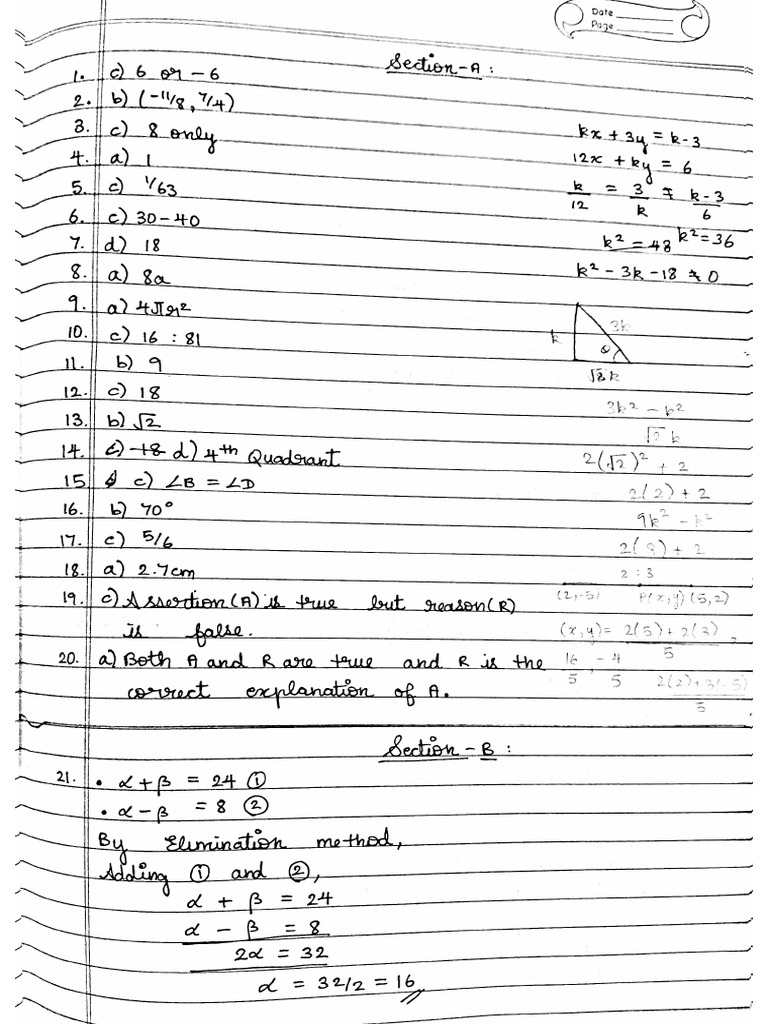 Date
Page
Section-A :
1. c) 6 or -6
2. b) (-11/8, 7/4)
3. c) 8 only
4. a) 1
5. c) 1/63
6. c) 30-40
7. d) 18
8. a) 8a
9. a) 4πr²
10. c) 16 : 81
11. b) 9
12. c) 18
13. b) √2
14. d) 4th Quadrant
15 c) ∠B = ∠D
16. b) 70°
17. c) 5/6
18. a) 2.7cm
19. c) Assertion(A) is true but reason(R)
is false.
20. a) Both A and R are true and R is the
correct explanation of A.
kx + 3y = k-3
12x + ky = 6
k/12 = 3/k ≠ k-3/6
k² = 48 k²=36
k² - 3k - 18 ≠ 0
k 3k θ
√8 k
3k² - k²
√2 k
2(√2)² + 2
2(2) + 2
9k² - k²
2(8) + 2
2 : 3
(2,-5) P(x,y) (5,2)
(x,y) = 2(5)+2(3)/5,
16/5, -4/5 2(2)+3(-5)/5
Section-B :
21. • α + β = 24 ①
• α - β = 8 ②
By Elimination method,
Adding ① and ②,
α + β = 24
α - β = 8
2α = 32
α = 32/2 = 16